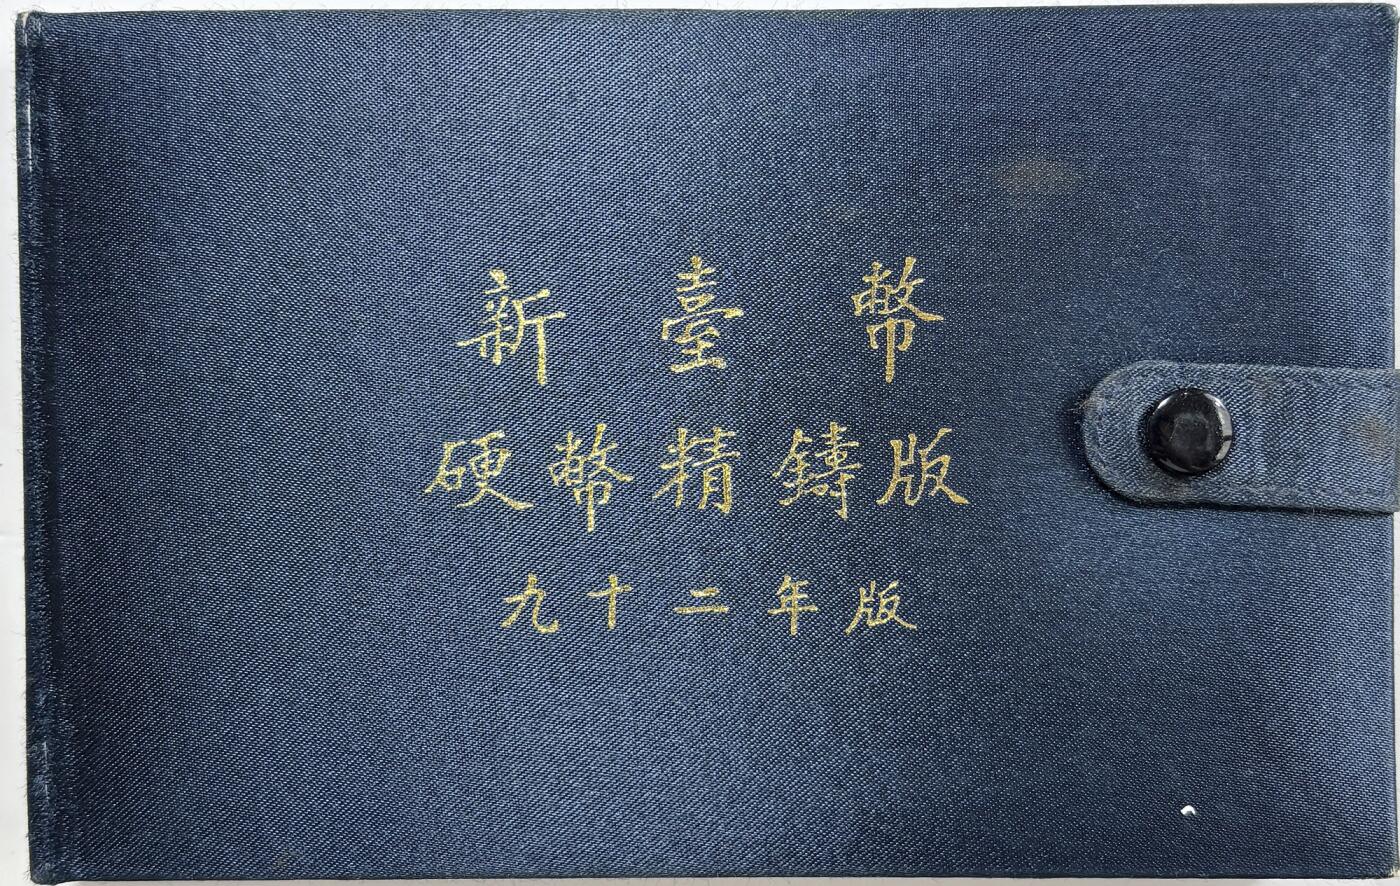 新臺幣
硬幣精鑄版
九十二年版